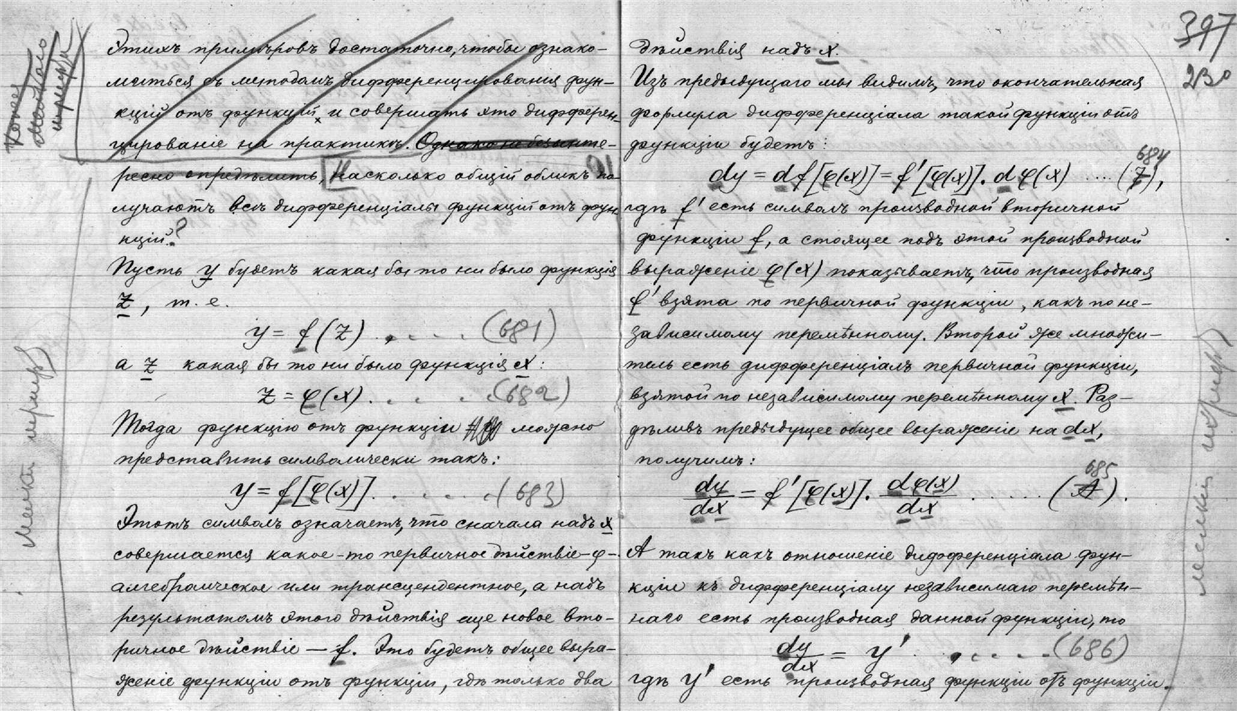 Этихъ примѣровъ достаточно, чтобы ознако-
миться съ методомъ дифференцирования фун-
кцій отъ функцій, и совершать это дифферен
цирование на практикѣ. Однако не безынте-
ресно опредѣлить, Насколько общій обликъ по
лучаютъ всѣ дифференціалы функцій отъ фун
кцій?
Пусть y будетъ какая бы то ни было функція
z, т. е.
y = f(z) . . . . (681)
а z какая бы то ни было функція x:
z = φ(x) . . . . (682)
Тогда функцію отъ функціи можно
представить символически такъ:
y = f[φ(x)] . . . . . (683)
Этотъ символъ означаетъ, что сначала надъ x
совершается какое-то первичное дѣйствіе – φ –
алгебраическое или трансцендентное, а надъ
результатомъ этого дѣйствія еще новое вто-
ричное дѣйствіе — f. Это будетъ общее выра-
женіе функціи отъ функціи, гдѣ только два
мелкій шрифтъ
397
230
дѣйствія надъ x.
Изъ предыдущаго мы видимъ, что окончательная
формула дифференціала такой функціи отъ
функціи будетъ:
dy = df[φ(x)] = f'[φ(x)] . dφ(x) .... (684),
гдѣ f' есть символъ производной вторичной
функціи f, а стоящее подъ этой производной
выраженіе φ(x) показываетъ, что производная
f' взята по первичной функціи, какъ по не-
зависимому перемѣнному. Второй же множи-
тель есть дифференціалъ первичной функціи,
взятой по независимому перемѣнному x. Раз-
дѣливъ предыдущее общее выраженіе на dx,
получимъ:
dy/dx = f'[φ(x)] . dφ(x)/dx ...... (685).
А такъ какъ отношеніе дифференціала фун-
кціи къ дифференціалу независимаго перемѣн-
наго есть производная данной функціи, то
dy/dx = y' . . . . . (686)
гдѣ y' есть производная функціи отъ функціи.
мелкій шрифтъ